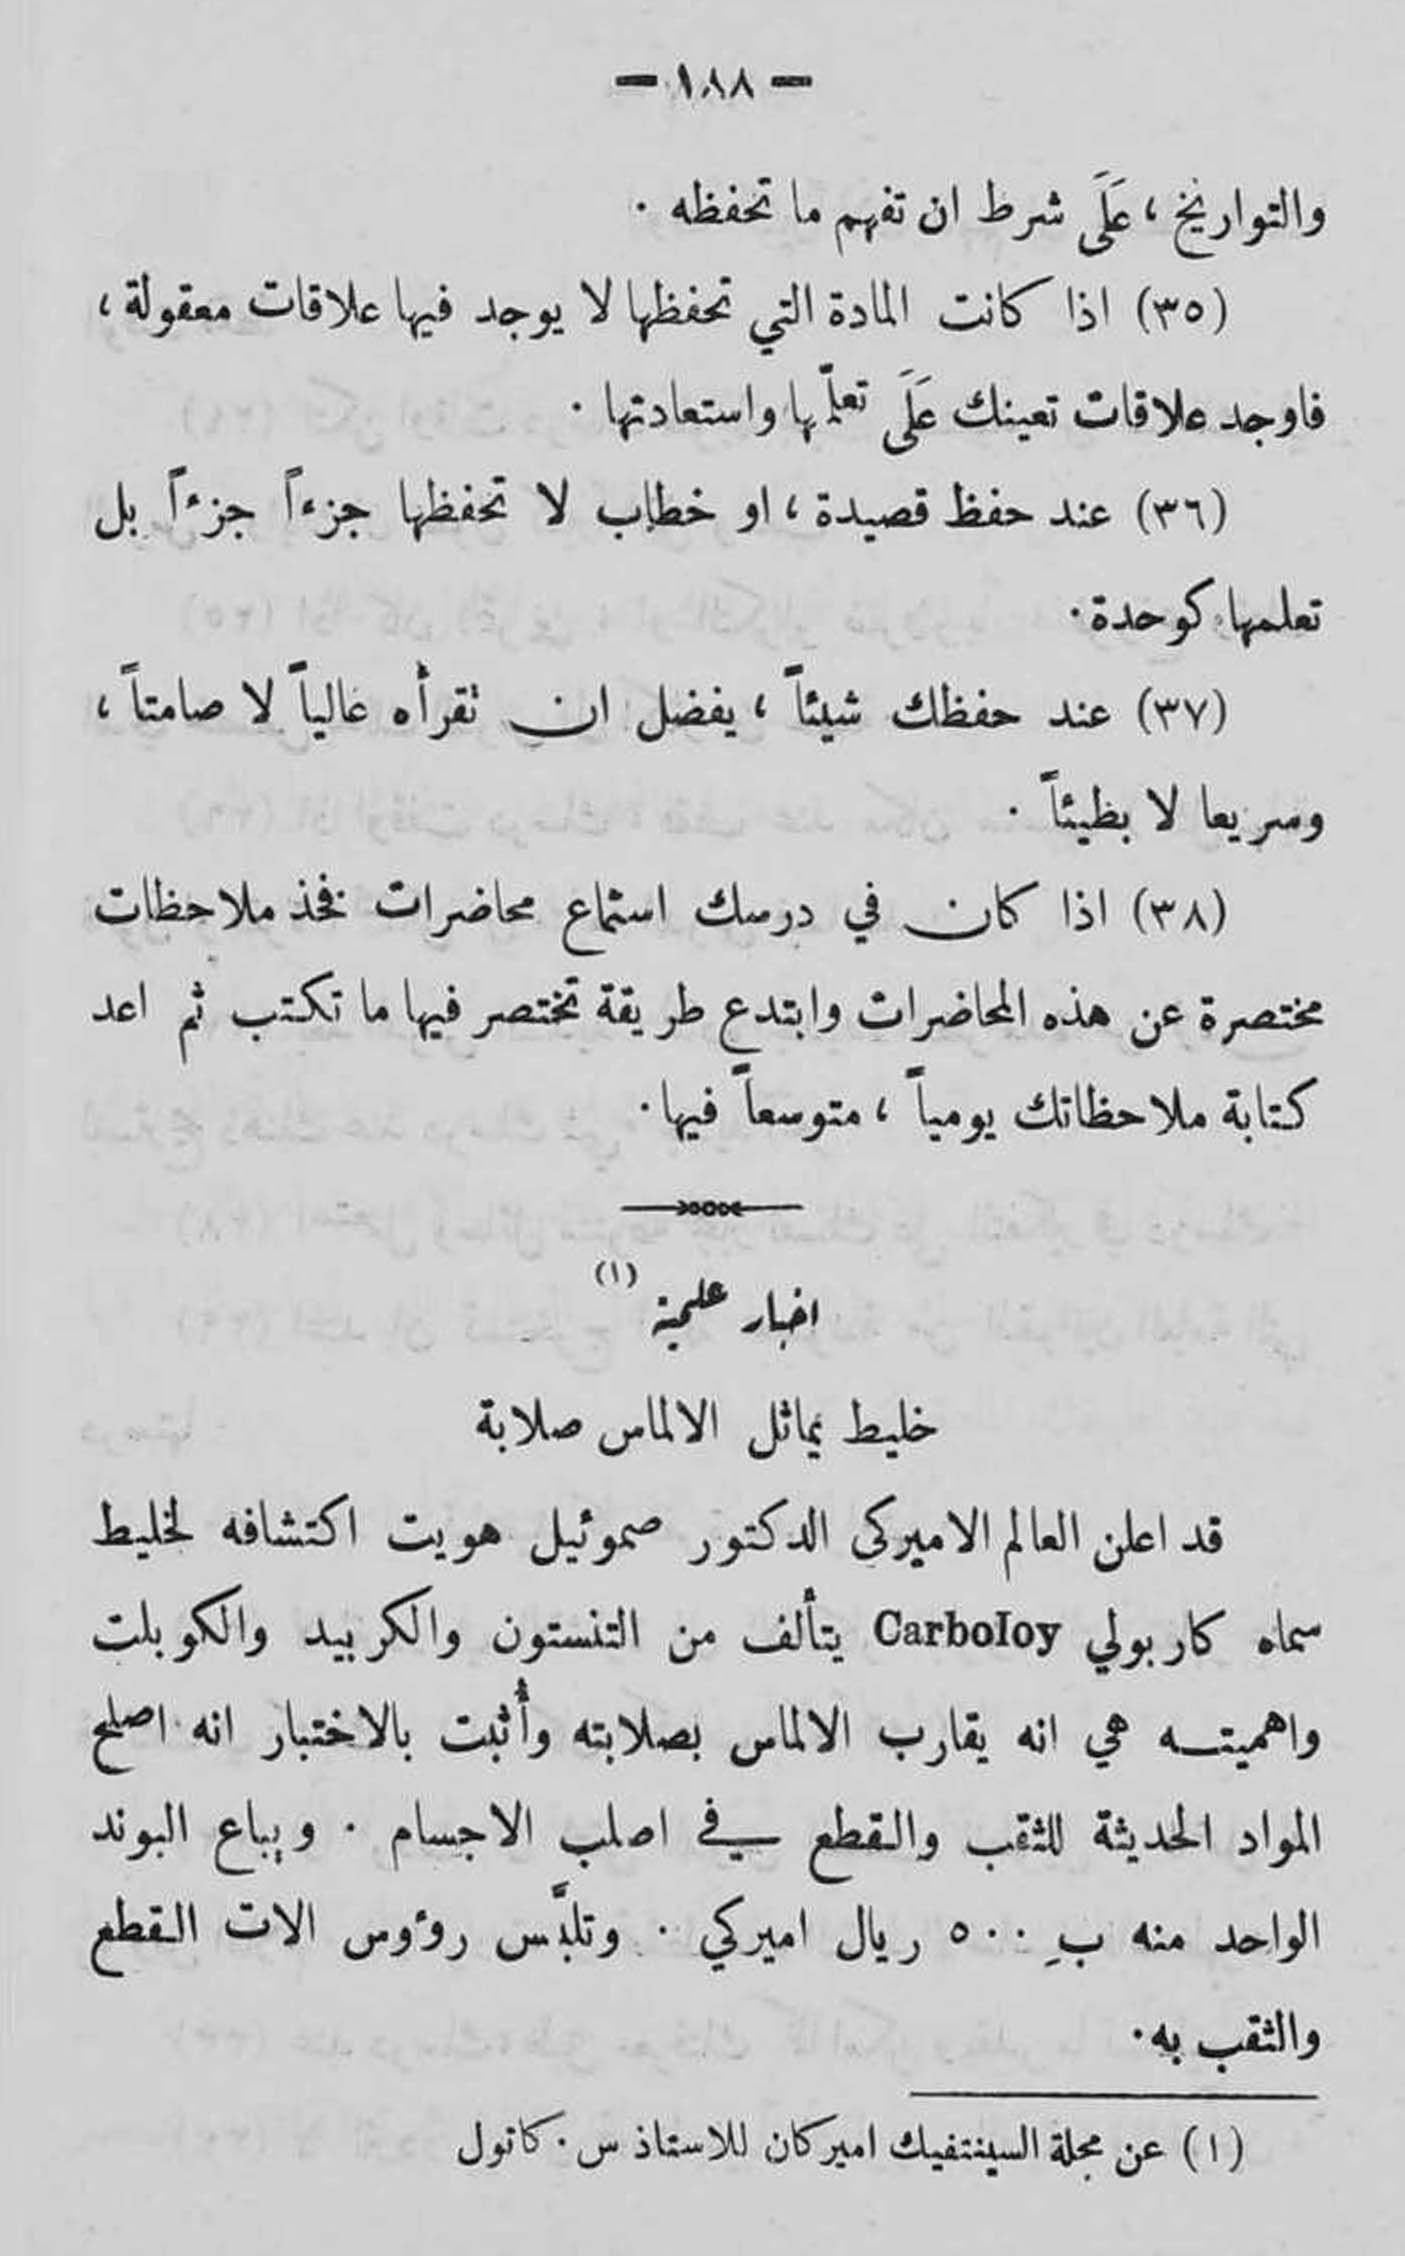 — ١٨٨ —
والتواريخ ، عَلَى شرط ان تفهم ما تحفظه .
(٣٥) اذا كانت المادة التي تحفظها لا يوجد فيها علاقات معقولة ،
فاوجد علاقات تعينك عَلَى تعلّمها واستعادتها .
(٣٦) عند حفظ قصيدة ، او خطاب لا تحفظها جزءاً جزءاً بل
تعلمها كوحدة .
(٣٧) عند حفظك شيئاً ، يفضل ان تقرأه عالياً لا صامتاً ،
وسريعا لا بطيئاً .
(٣٨) اذا كان في درسك استماع محاضرات فخذ ملاحظات
مختصرة عن هذه المحاضرات وابتدع طريقة تختصر فيها ما تكتب ثم اعد
كتابة ملاحظاتك يومياً ، متوسعاً فيها .
اخبار علمية (١)
خليط يماثل الالماس صلابة
قد اعلن العالم الاميركي الدكتور صموئيل هويت اكتشافه لخليط
سماه كاربولي Carboloy يتألف من التنستون والكربيد والكوبلت
واهميته هي انه يقارب الالماس بصلابته وأثبت بالاختبار انه اصلح
المواد الحديثة للثقب والقطع في اصلب الاجسام . ويباع البوند
الواحد منه بِ ٥٠٠ ريال اميركي . وتلبَّس روؤس الات القطع
والثقب به .
(١) عن مجلة السينتفيك اميركان للاستاذ س . كاتول